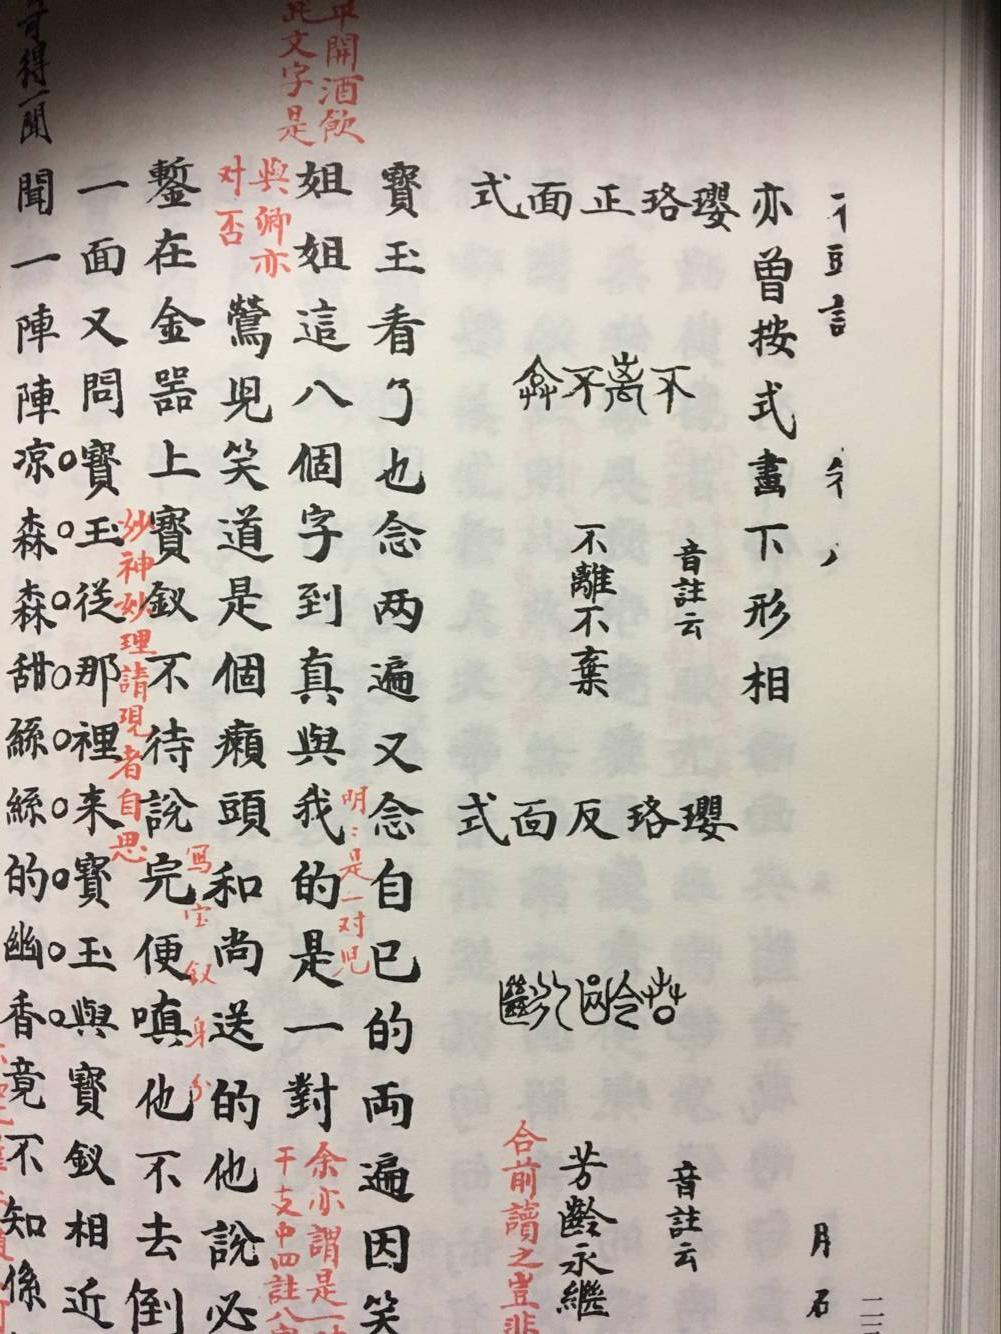 亦曾按式畫下形相
式面正珞瓔
不離不棄
音註云
不離不棄
式面反珞瓔
芳齡永繼
音註云
芳齡永繼
合前讀之豈非
寶玉看了也念两遍又念自已的兩遍因笑
姐姐這八個字到真與我的是一對
明:是一对児
余亦謂是一對
干支中四註八字
與卿亦
对否
鶯児笑道是個癩頭和尚送的他說必
鏨在金器上寶釵不待說完便嗔他不去倒
写宝釵身分
一面又問寶玉從那裡来寶玉與寶釵相近
妙神妙理請現者自思
聞一陣陣凉森森甜絲絲的幽香竟不知係
開酒飲
文字是
可得一聞
月石